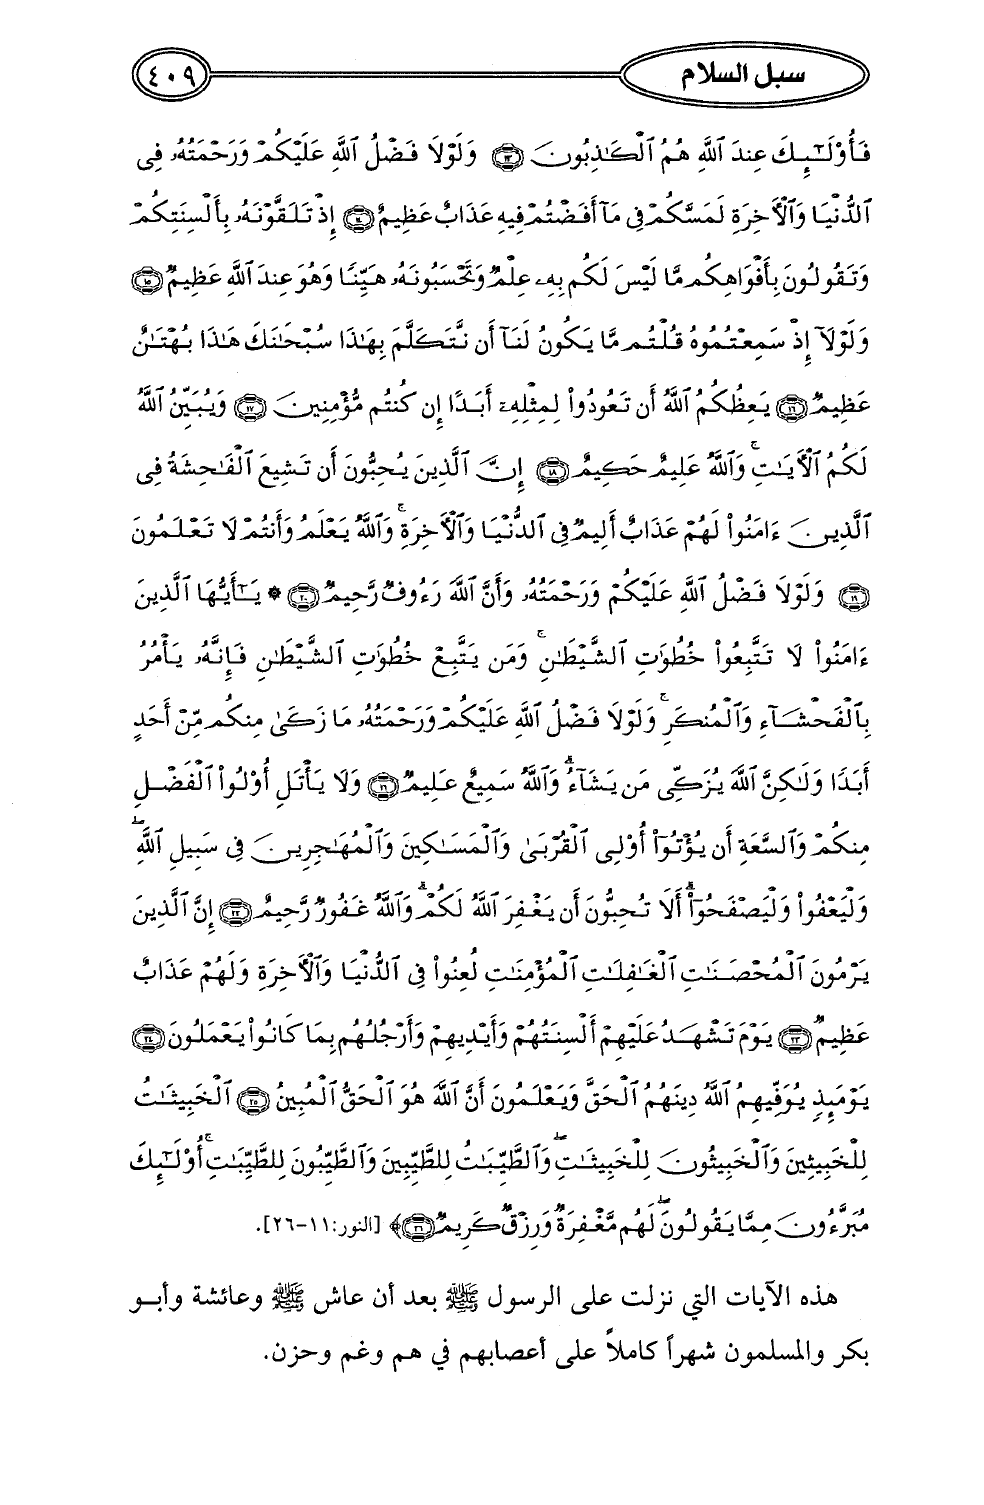 سبل السلام ٤٠٩
فَأُوْلَٰٓئِكَ عِندَ ٱللَّهِ هُمُ ٱلْكَٰذِبُونَ ١٣ وَلَوْلَا فَضْلُ ٱللَّهِ عَلَيْكُمْ وَرَحْمَتُهُۥ فِى
ٱلدُّنْيَا وَٱلْأَخِرَةِ لَمَسَّكُمْ فِى مَآ أَفَضْتُمْ فِيهِ عَذَابٌ عَظِيمٌ ١٤ إِذْ تَلَقَّوْنَهُۥ بِأَلْسِنَتِكُمْ
وَتَقُولُونَ بِأَفْوَاهِكُم مَّا لَيْسَ لَكُم بِهِۦ عِلْمٌ وَتَحْسَبُونَهُۥ هَيِّنًا وَهُوَ عِندَ ٱللَّهِ عَظِيمٌ ١٥
وَلَوْلَآ إِذْ سَمِعْتُمُوهُ قُلْتُم مَّا يَكُونُ لَنَآ أَن نَّتَكَلَّمَ بِهَٰذَا سُبْحَٰنَكَ هَٰذَا بُهْتَٰنٌ
عَظِيمٌ ١٦ يَعِظُكُمُ ٱللَّهُ أَن تَعُودُواْ لِمِثْلِهِۦٓ أَبَدًا إِن كُنتُم مُّؤْمِنِينَ ١٧ وَيُبَيِّنُ ٱللَّهُ
لَكُمُ ٱلْأَيَٰتِ ۚ وَٱللَّهُ عَلِيمٌ حَكِيمٌ ١٨ إِنَّ ٱلَّذِينَ يُحِبُّونَ أَن تَشِيعَ ٱلْفَٰحِشَةُ فِى
ٱلَّذِينَ ءَامَنُواْ لَهُمْ عَذَابٌ أَلِيمٌ فِى ٱلدُّنْيَا وَٱلْأَخِرَةِ ۚ وَٱللَّهُ يَعْلَمُ وَأَنتُمْ لَا تَعْلَمُونَ
١٩ وَلَوْلَا فَضْلُ ٱللَّهِ عَلَيْكُمْ وَرَحْمَتُهُۥ وَأَنَّ ٱللَّهَ رَءُوفٌ رَّحِيمٌ ٢٠ * يَٰٓأَيُّهَا ٱلَّذِينَ
ءَامَنُواْ لَا تَتَّبِعُواْ خُطُوَٰتِ ٱلشَّيْطَٰنِ ۚ وَمَن يَتَّبِعْ خُطُوَٰتِ ٱلشَّيْطَٰنِ فَإِنَّهُۥ يَأْمُرُ
بِٱلْفَحْشَآءِ وَٱلْمُنكَرِ ۚ وَلَوْلَا فَضْلُ ٱللَّهِ عَلَيْكُمْ وَرَحْمَتُهُۥ مَا زَكَىٰ مِنكُم مِّنْ أَحَدٍ
أَبَدًا وَلَٰكِنَّ ٱللَّهَ يُزَكِّى مَن يَشَآءُ ۗ وَٱللَّهُ سَمِيعٌ عَلِيمٌ ٢١ وَلَا يَأْتَلِ أُوْلُواْ ٱلْفَضْلِ
مِنكُمْ وَٱلسَّعَةِ أَن يُؤْتُوٓاْ أُوْلِى ٱلْقُرْبَىٰ وَٱلْمَسَٰكِينَ وَٱلْمُهَٰجِرِينَ فِى سَبِيلِ ٱللَّهِ ۖ
وَلْيَعْفُواْ وَلْيَصْفَحُوٓاْ ۗ أَلَا تُحِبُّونَ أَن يَغْفِرَ ٱللَّهُ لَكُمْ ۗ وَٱللَّهُ غَفُورٌ رَّحِيمٌ ٢٢ إِنَّ ٱلَّذِينَ
يَرْمُونَ ٱلْمُحْصَنَٰتِ ٱلْغَٰفِلَٰتِ ٱلْمُؤْمِنَٰتِ لُعِنُواْ فِى ٱلدُّنْيَا وَٱلْأَخِرَةِ وَلَهُمْ عَذَابٌ
عَظِيمٌ ٢٣ يَوْمَ تَشْهَدُ عَلَيْهِمْ أَلْسِنَتُهُمْ وَأَيْدِيهِمْ وَأَرْجُلُهُم بِمَا كَانُواْ يَعْمَلُونَ ٢٤
يَوْمَئِذٍ يُوَفِّيهِمُ ٱللَّهُ دِينَهُمُ ٱلْحَقَّ وَيَعْلَمُونَ أَنَّ ٱللَّهَ هُوَ ٱلْحَقُّ ٱلْمُبِينُ ٢٥ ٱلْخَبِيثَٰتُ
لِلْخَبِيثِينَ وَٱلْخَبِيثُونَ لِلْخَبِيثَٰتِ ۖ وَٱلطَّيِّبَٰتُ لِلطَّيِّبِينَ وَٱلطَّيِّبُونَ لِلطَّيِّبَٰتِ ۚ أُوْلَٰٓئِكَ
مُبَرَّءُونَ مِمَّا يَقُولُونَ ۖ لَهُم مَّغْفِرَةٌ وَرِزْقٌ كَرِيمٌ ٢٦﴾ [النور: ١١-٢٦].
هذه الآيات التي نزلت على الرسول ﷺ بعد أن عاش ﷺ وعائشة وأبو
بكر والمسلمون شهراً كاملاً على أعصابهم في هم وغم وحزن.